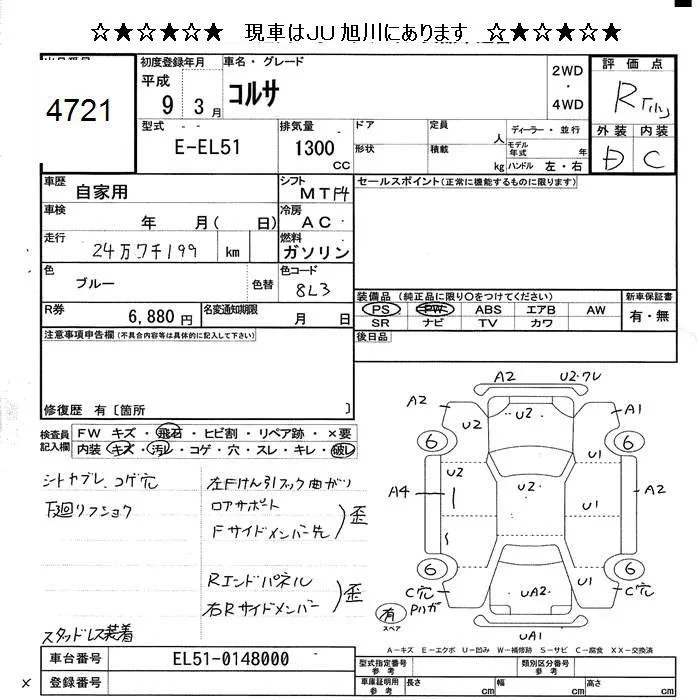 ☆★☆★☆★ 現車はJU旭川にあります ☆★☆★☆★
4721
初度登録年月 車名・グレード 2WD 評価点
平成 9 3月 コルサ ・ 4WD R
型式 排気量 ドア 定員 人 ディーラー・並行 外装 内装
E-EL51 1300 CC 形状 積載 kg モデル年式 年 ハンドル 左・右 D C
車歴 自家用 シフト MT F4 セールスポイント(正常に機能するものに限ります)
車検 年 月( 日) 冷房 AC
走行 24万7千199 km 燃料 ガソリン
色 ブルー 色替 色コード 8L3
装備品 (純正品に限り○をつけてください) 新車保証書
R券 6,880円 名変通知期限 月 日 PS PW ABS エアB AW 有・無
SR ナビ TV カワ
注意事項申告欄(不具合内容等は具体的に記入して下さい) 後日品
修復歴 有〔箇所 〕
検査員記入欄 FW キズ・飛石・ヒビ割・リペア跡・×要
内装 キズ・汚レ・コゲ・穴・スレ・キレ・破レ
シートヤブレ、コゲ穴
下廻リフショク
左Fけん引フック曲がり
ロアサポート
Fサイドメンバー先 歪
Rエンドパネル
右Rサイドメンバー 歪
スタッドレス装着
A2 U2・ワレ
A2 U2 U2 A1
6 6
U2 U2
A4 U1 A2
6 U1 6
C穴 UA2 C穴
有 スペア
UA1
A-キズ E-エクボ U-凹み W-補修跡 S-サビ C-腐食 XX-交換済
車台番号 EL51-0148000 型式指定番号 参考 類別区分番号 参考
× 登録番号 車庫証明用 参考 長さ cm 幅 cm 高さ cm